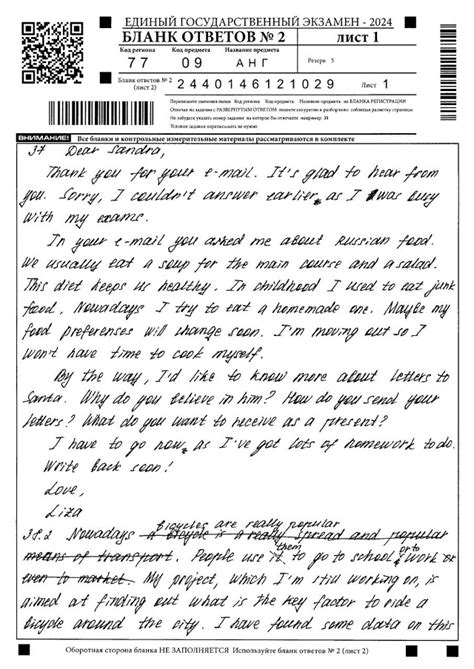 ЕДИНЫЙ ГОСУДАРСТВЕННЫЙ ЭКЗАМЕН - 2024
БЛАНК ОТВЕТОВ № 2 лист 1
Код региона Код предмета Название предмета
77 09 АНГ Резерв 5
Бланк ответов № 2 (лист 2) 2440146121029 Лист 1
Перепишите значения полей Код региона Код предмета Название предмета из БЛАНКА РЕГИСТРАЦИИ
Отвечая на задания с РАЗВЕРНУТЫМ ОТВЕТОМ пишите аккуратно и разборчиво соблюдая разметку страницы
Не забудьте указать номер задания на которое Вы отвечаете например 31
Условия задания переписывать не нужно
ВНИМАНИЕ! Все бланки и контрольные измерительные материалы рассматриваются в комплекте
37 Dear Sandra,
Thank you for your e-mail. It's glad to hear from
you. Sorry, I couldn't answer earlier, as I was busy
with my exams.
In your e-mail you asked me about Russian food.
We usually eat a soup for the main course and a salad.
This diet keeps us healthy. In childhood I used to eat junk
food, Nowadays I try to eat a homemade one. Maybe my
food preferenses will change soon. I'm moving out so I
won't have time to cook myself.
By the way, I'd like to know more about letters to
Santa. Why do you believe in him? How do you send your
letters? What do you want to receive as a present?
I have to go now, as I've got lots of homework to do.
Write back soon!
Love,
Liza
bicycles are really popular
38.2 Nowadays a bicycle is a really spread and popular
means of transport. People use it them to go to school, or to work or
even to market. My project, which I'm still working on, is
aimed at finding out what is the key factor to ride a
bicycle around the city. I have found some data on this
Оборотная сторона бланка НЕ ЗАПОЛНЯЕТСЯ Используйте бланк ответов № 2 (лист 2)